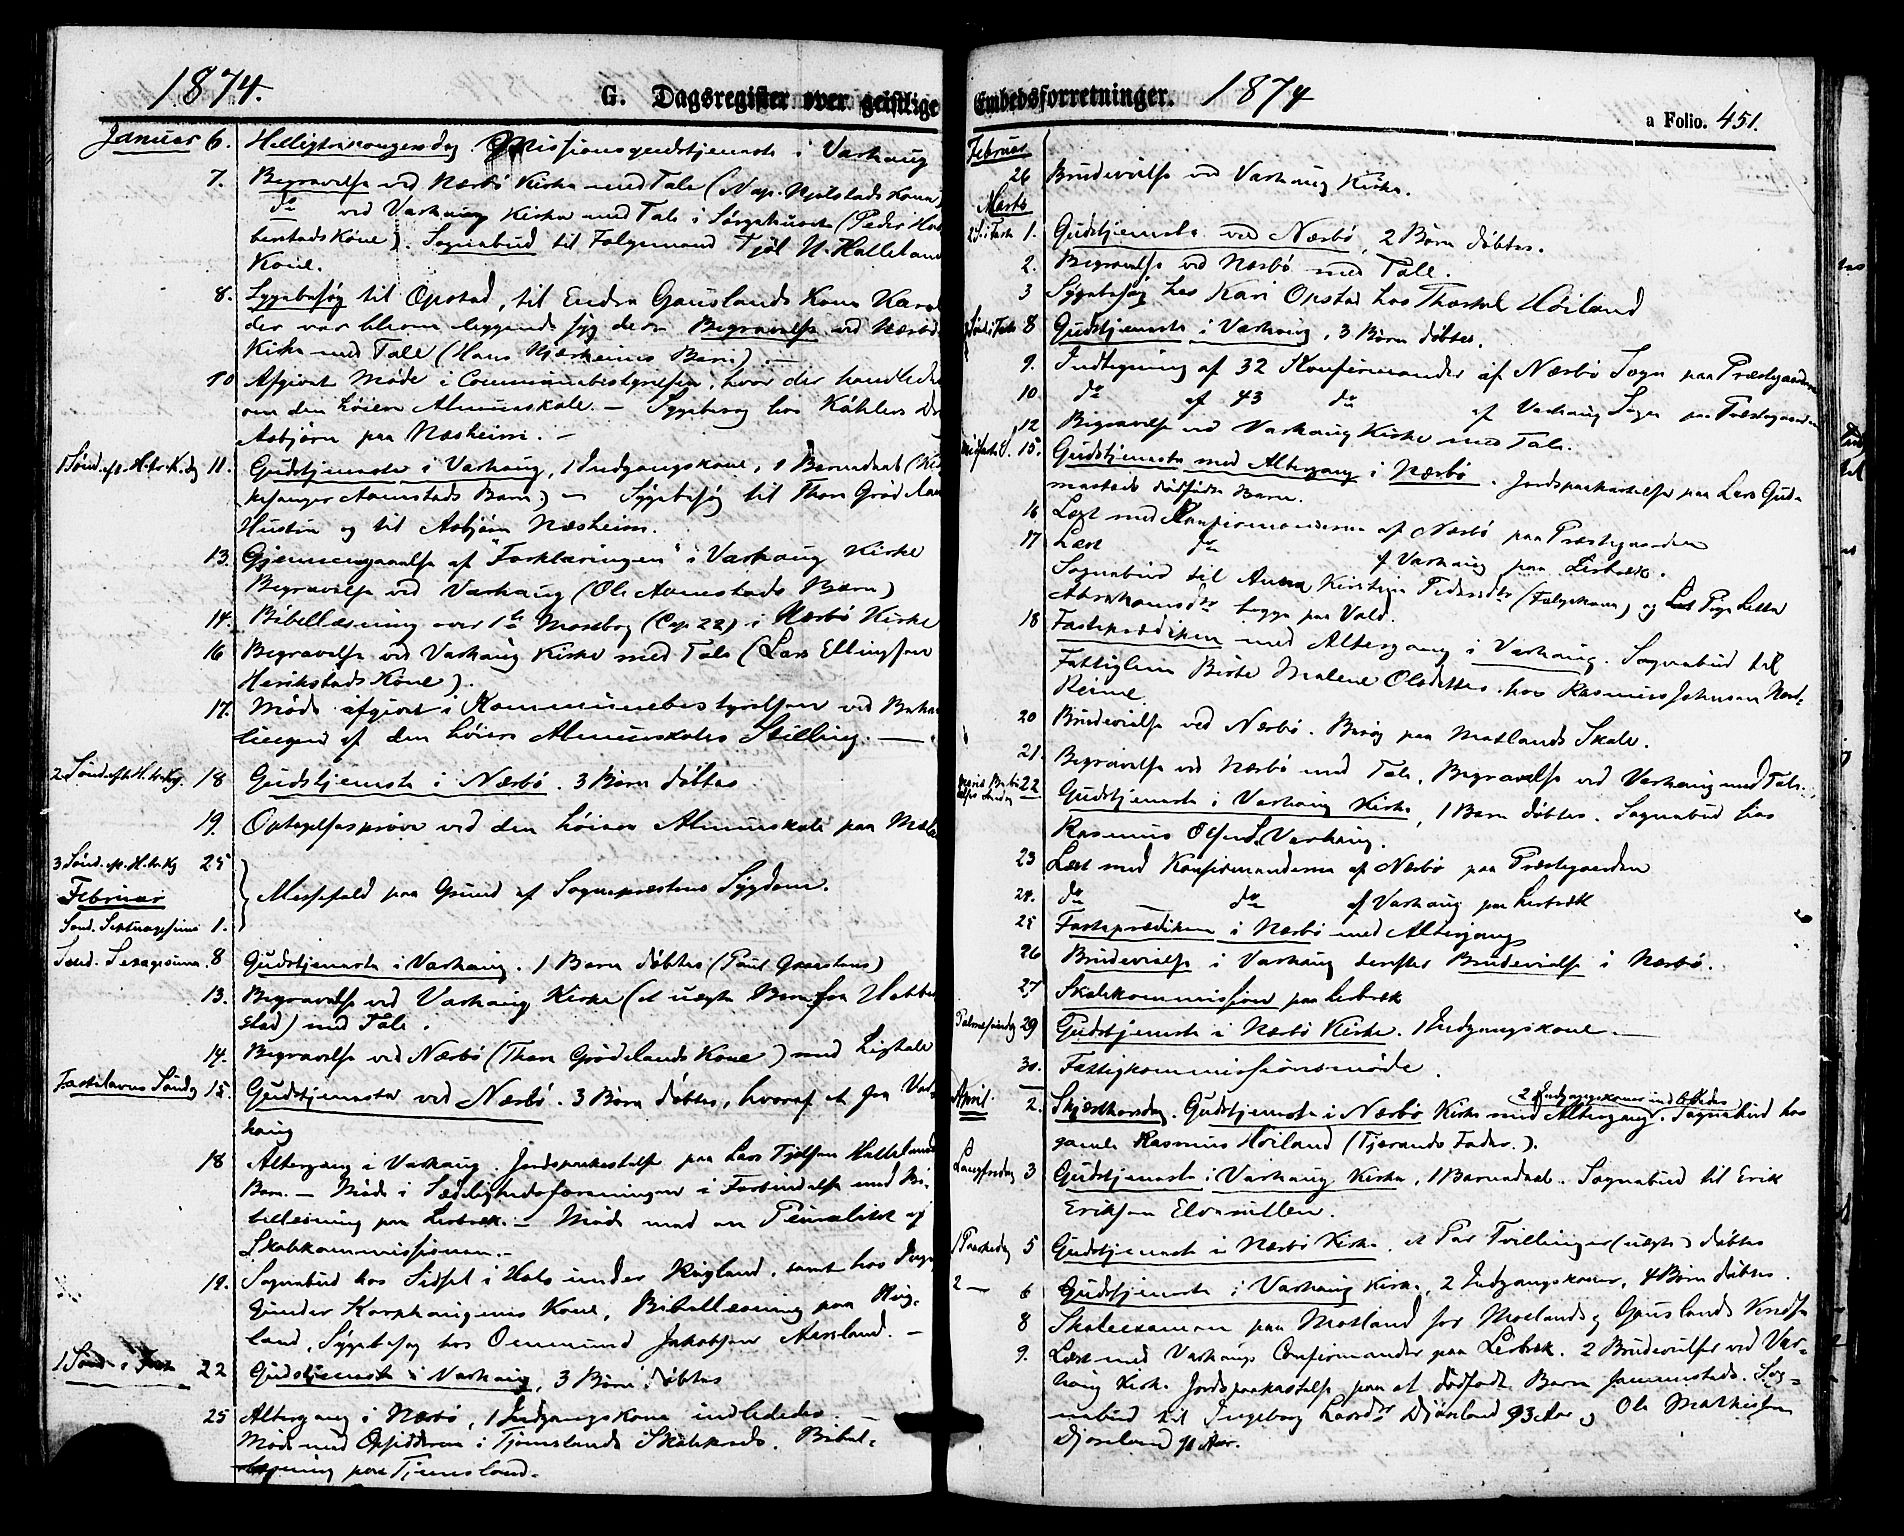 1874.
G. Dagsregister over geistlige
Januar 6. Helligtrekongersdag Missionsgudstjeneste i Varhaug
7. Begravelse ved Nærbö Kirke med Tale (
do ved Varhaug Kirke med Tale i Sörgehuset (Peder
berstads Kone). Sognebud til Fölgemand Tjöl N. Halleland
Kone.
8. Sygebesøg til Opstad, til Endre Gauslands Kone
der var bleven liggende syg der. Begravelse ved Nærbö
Kirke med Tale (Hans Njærheims Barn). —
10 Afgivet Møde i Communebestyrelsen, hvor der handledes
om den höiere Almueskole. — Sygebesøg hos
Asbjörn paa Næsheim. —
1 Sönd. ep. H. tr. K. dg 11. Gudstjeneste i Varhaug, 1 Indgangskone, 1 Barnedaab (
Aanestads Barn) — Sygebesøg til Thore Gröde
Hustru og til Asbjörn Næsheim.
13. Gjennemgaaelse af "Forklaringen" i Varhaug Kirke
Begravelse ved Varhaug (Ole Aanestads Barn)
14. Bibellæsning over 1ste Mosebog (Cap. 22) i Nærbö Kirke
16 Begravelse ved Varhaug Kirke med Tale (Lars Ellingsen
Herikstads Kone).
17. Møde afgivet i Kommunebestyrelsen ved
af den höiere Almueskoles Stilling. —
2 Sönd. eft. H. tr. Kg. 18 Gudstjeneste i Nærbö. 3 Börn döbtes
19. Optagelsespröve ved den höiere Almueskole paa
3 Sönd. ep. H. tr. Kg 25
Februar
Messefald paa Grund af Sognepræstens Sygdom.
Sönd. Septuagesima 1.
Sönd. Sexagesima. 8 Gudstjeneste i Varhaug. 1 Barn döbtes (Paul
13. Begravelse ved Varhaug Kirke (et uægte Barn fra
stad) med Tale.
14. Begravelse ved Nærbö (Thore Grödelands Kone) med Ligtale
Fastelavns Söndag 15. Gudstjeneste ved Nærbö. 3 Börn döbtes, hvoraf et fra Var-
haug
18 Altergang i Varhaug. Jordspaakastelse paa Lars Tjölsen Hallelands
Barn. — Møde i Sædelighedsforeningen i Forbindelse med Bi-
bellæsning paa Lerbræk. — Møde med en af
Skolekommissionen. —
19. Sognebud hos Sidsel i under samt hos
Gunder Karphaugens Kone, Bibellæsning paa
land, Sygebesøg hos Ommund Jakobsen —
1 Sönd. i Faste 22 Gudstjeneste i Varhaug, 3 Börn döbtes
25 Altergang i Nærbö, 1 Indgangskone indlededes. —
Møde med Opsidderne i Tjemslands Skolekreds. Bibel-
læsning paa Tjemsland.
Embedsforretninger. 1874
a Folio. 451.
Februar
26 Brudevielse ved Varhaug Kirke.
Marts
2 S. i Faste 1. Gudstjeneste ved Nærbö, 2 Börn döbtes.
2. Begravelse ved Nærbö med Tale.
3 Sygebesøg hos Kari Opstad hos Höiland
Sönd. i Faste 8 Gudstjeneste i Varhaug, 3 Börn döbtes.
9. Indtegning af 32 Konfirmander af Nærbö Sogn paa Præstegaarden
10. do af 43 do af Varhaug Sogn paa Præstegaarden
12 Begravelse ved Varhaug Kirke med Tale.
Midfaste S. 15. Gudstjeneste med Altergang i Nærbö. Jordspaakastelse paa Lars Gud-
mestads dödfödte Barn.
16 Læst med Konfirmanderne af Nærbö paa Præstegaarden
17 Læst do af Varhaug paa Lerbræk.
Sognebud til Anna Kirstine (Fölgekone) og
Abrahamsdtr begge paa Vold.
18 Fasteprædiken med Altergang i Varhaug. Sognebud til
Fattiglem Birte Malene Olsdatter hos Rasmus Johnsen
Reime.
20 Brudevielse ved Nærbö. Besøg paa Motlands Skole.
21. Begravelse ved Nærbö med Tale, Begravelse ved Varhaug med Tale.
22 Gudstjeneste i Varhaug Kirke, 1 Barn döbtes. Sognebud hos
Rasmus Olsen Varhaug.
23 Læst med Konfirmanderne af Nærbö paa Præstegaarden
24. do — do af Varhaug paa Lerbræk
25 Fasteprædiken i Nærbö med Altergang
26 Brudevielse i Varhaug derefter Brudevielse i Nærbö.
27 Skolekommission paa Lerbræk
Palmesöndag 29 Gudstjeneste i Nærbö Kirke. 1 Indgangskone. —
30. Fattigkommissionsmöde.
April. 2. Skjærthorsdag. Gudstjeneste i Nærbö Kirke med Altergang. Sognebud hos
2 Indgangskoner indlededes
gamle Rasmus Höiland (Tjerands Fader.).
Langfredag 3 Gudstjeneste i Varhaug Kirke, 1 Barnedaab. Sognebud til Erik
Eriksen
1 Paaskedag 5 Gudstjeneste i Nærbö Kirke. et Par Tvillinger (uægte) döbtes
2 — 6 Gudstjeneste i Varhaug Kirke, 2 Indgangskoner, 4 Börn döbtes.
8 Skoleexamen paa Motland for Motlands og Gauslands Kredse
9. Læst med Varhaugs Confirmander paa Lerbræk. 2 Brudevielser ved Var-
haug Kirke. Jordspaakastelse paa et dödfödt Barn Sog-
nebud til Ingeborg Djösland 93 Aar og Ole Mathissen
Djösland 91 Aar.